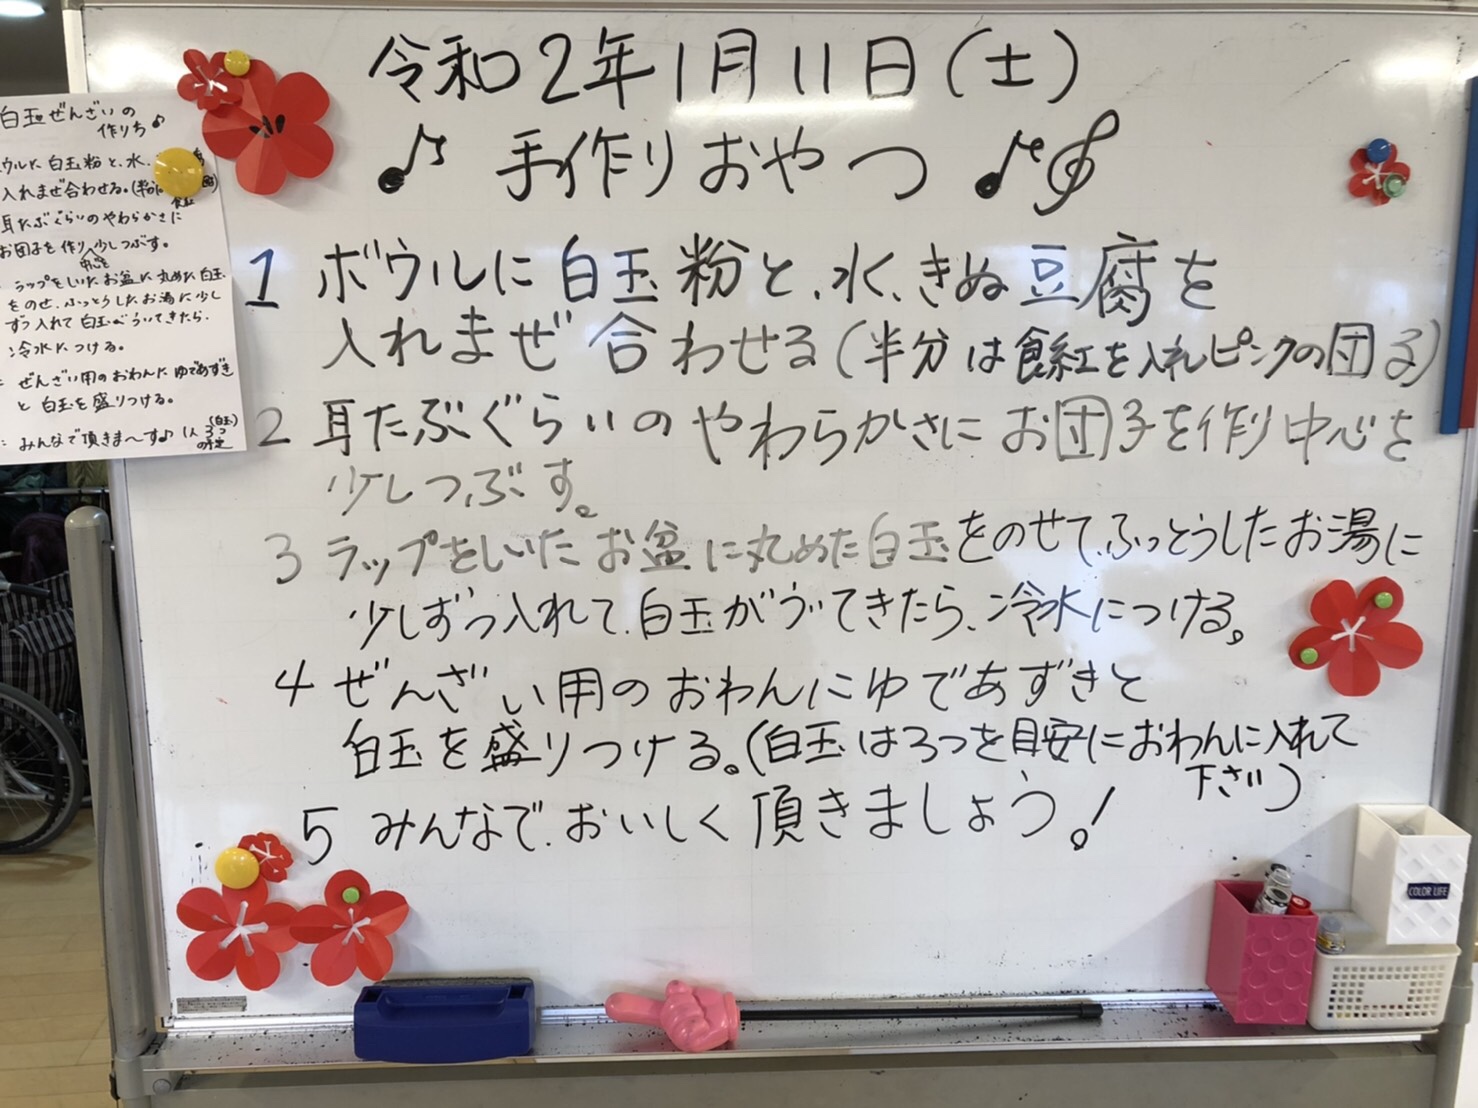 令和2年1月11日(土)
♪ 手作りおやつ ♪
1 ボウルに白玉粉と、水、きぬ豆腐を
入れまぜ合わせる(半分は食紅を入れピンクの団子)
2 耳たぶぐらいのやわらかさにお団子を作り中心を
少しつぶす。
3 ラップをしいたお盆に丸めた白玉をのせて、ふっとうしたお湯に
少しずつ入れて、白玉がういてきたら、冷水につける。
4 ぜんざい用のおわんにゆであずきと
白玉を盛りつける。(白玉は3つを目安におわんに入れて
下さい)
5 みんなで、おいしく頂きましょう!
白玉ぜんざいの
作り方♪
ウルに白玉粉と、水、
入れまぜ合わせる。(半分に
食紅
耳たぶぐらいのやわらかさに
お団子を作り少しつぶす。
中心を
ラップをしいたお盆に丸めた白玉
をのせ、ふっとうしたお湯に少し
ずつ入れて白玉がういてきたら、
冷水につける。
ぜんざい用のおわんにゆであずき
と白玉を盛りつける。
みんなで頂きま〜す♪ (1人 3つ
(白玉)
の予定
COLOR LIFE